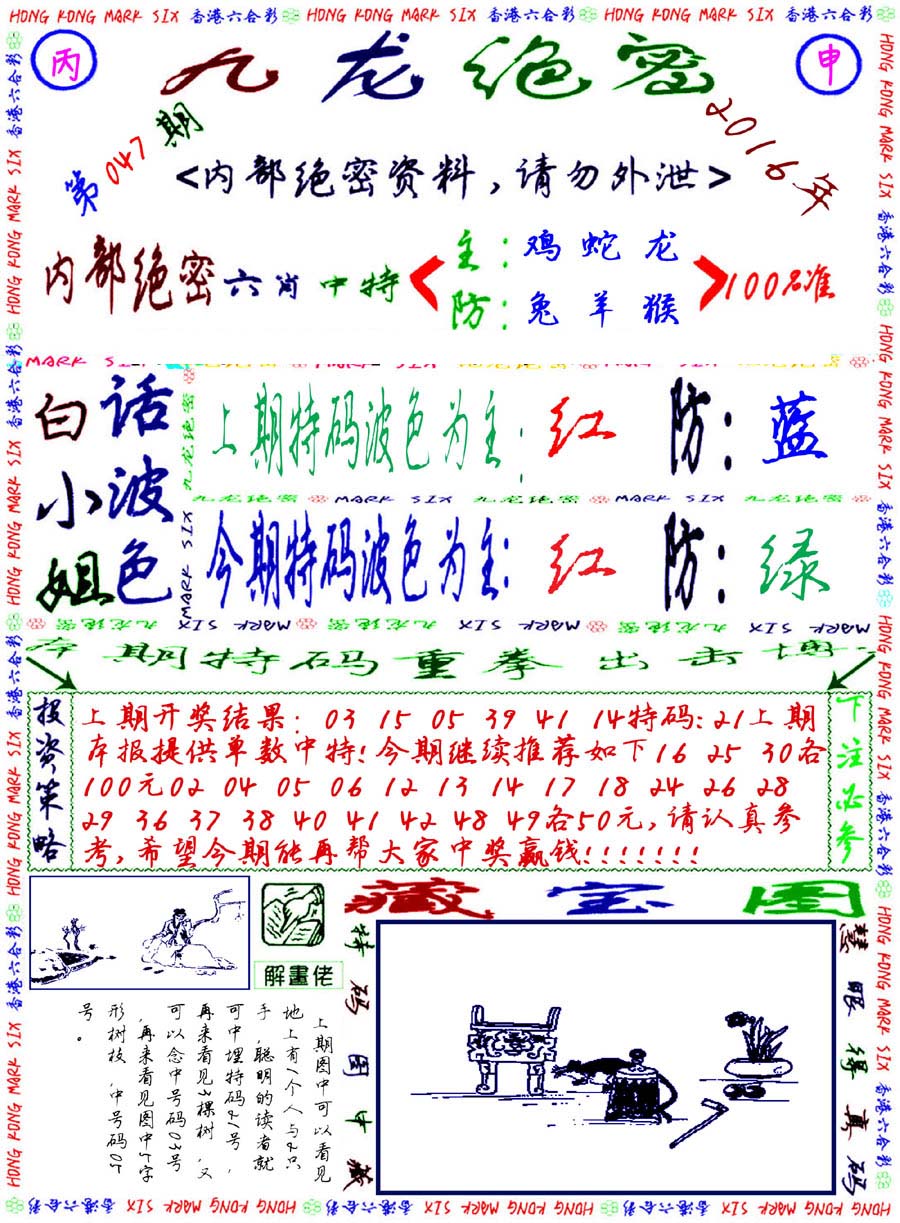 HONG KONG MARK SIX 香港六合彩 HONG KONG MARK SIX 香港六合彩 HONG KONG MARK SIX 香港六合彩
丙
九龙绝密
申
第047期
2016年
<内部绝密资料，请勿外泄>
内部绝密六肖中特
主：鸡蛇龙
防：兔羊猴
100%准
白小姐
话波色
上期特码波色为主：红 防：蓝
九龙绝密 MARK SIX 九龙绝密 MARK SIX 九龙绝密
今期特码波色为主：红 防：绿
MARK SIX 九龙绝密 MARK SIX 九龙绝密 MARK SIX 九龙绝密
本期特码重拳出击博
投资策略
上期开奖结果：03 15 05 39 41 14特码：21上期
本报提供单数中特！今期继续推荐如下16 25 30各
100元02 04 05 06 12 13 14 17 18 24 26 28
29 36 37 38 40 41 42 48 49各50元，请认真参
考，希望今期能再帮大家中奖赢钱！！！！！！！
下注必参
藏宝图
解畫佬
特码图中藏
慧眼得真码
上期图中可以看见
地上有1个人与2只
手，聪明的读者就
可中埋特码21号，
再来看见3棵树，又
可以念中号码03号
，再来看见图中5字
形树枝，中号码05
号。
HONG KONG MARK SIX 香港六合彩 HONG KONG MARK SIX 香港六合彩 HONG KONG MARK SIX 香港六合彩